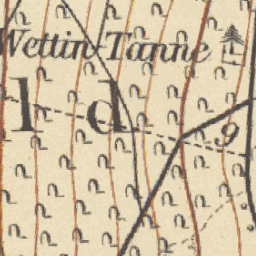 Wettin-Tanne
l d
9